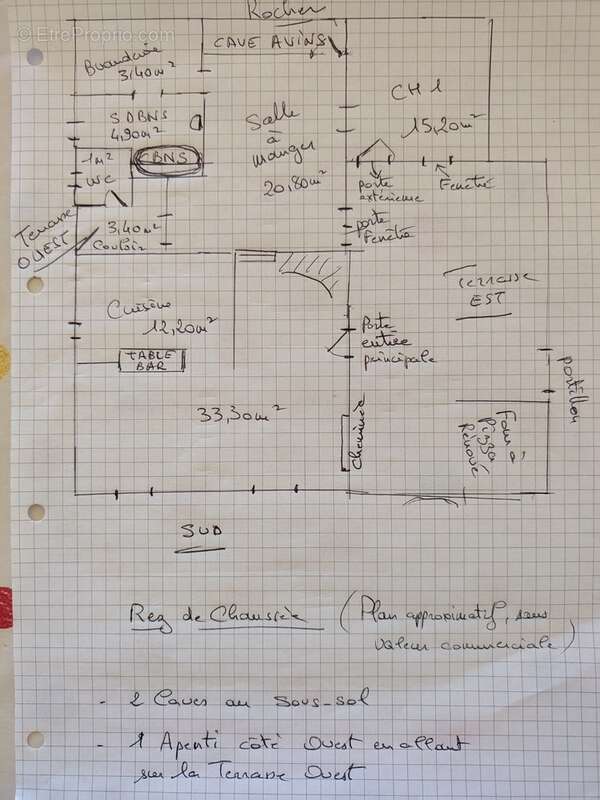 © EtreProprio.com
Rocher
Buanderie
3,40m²
CAVE A VINS
CH 1
15,20m²
SDBNS
4,90m²
Salle
à
manger
20,80m²
1m²
WC
CBNS
porte
extérieure
Fenêtre
Terrasse
OUEST
3,40m²
Couloir
porte
Fenêtre
Terrasse
EST
Cuisine
12,20m²
Porte
entrée
principale
TABLE
BAR
portillon
33,30m²
Cheminée
Four à
Pizza
Rénové
SUD
Rez de Chaussée (Plan approximatif, sans
valeur commerciale)
- 2 Caves au Sous-sol
- 1 Apenti côté Ouest en allant
sur la Terrasse Ouest